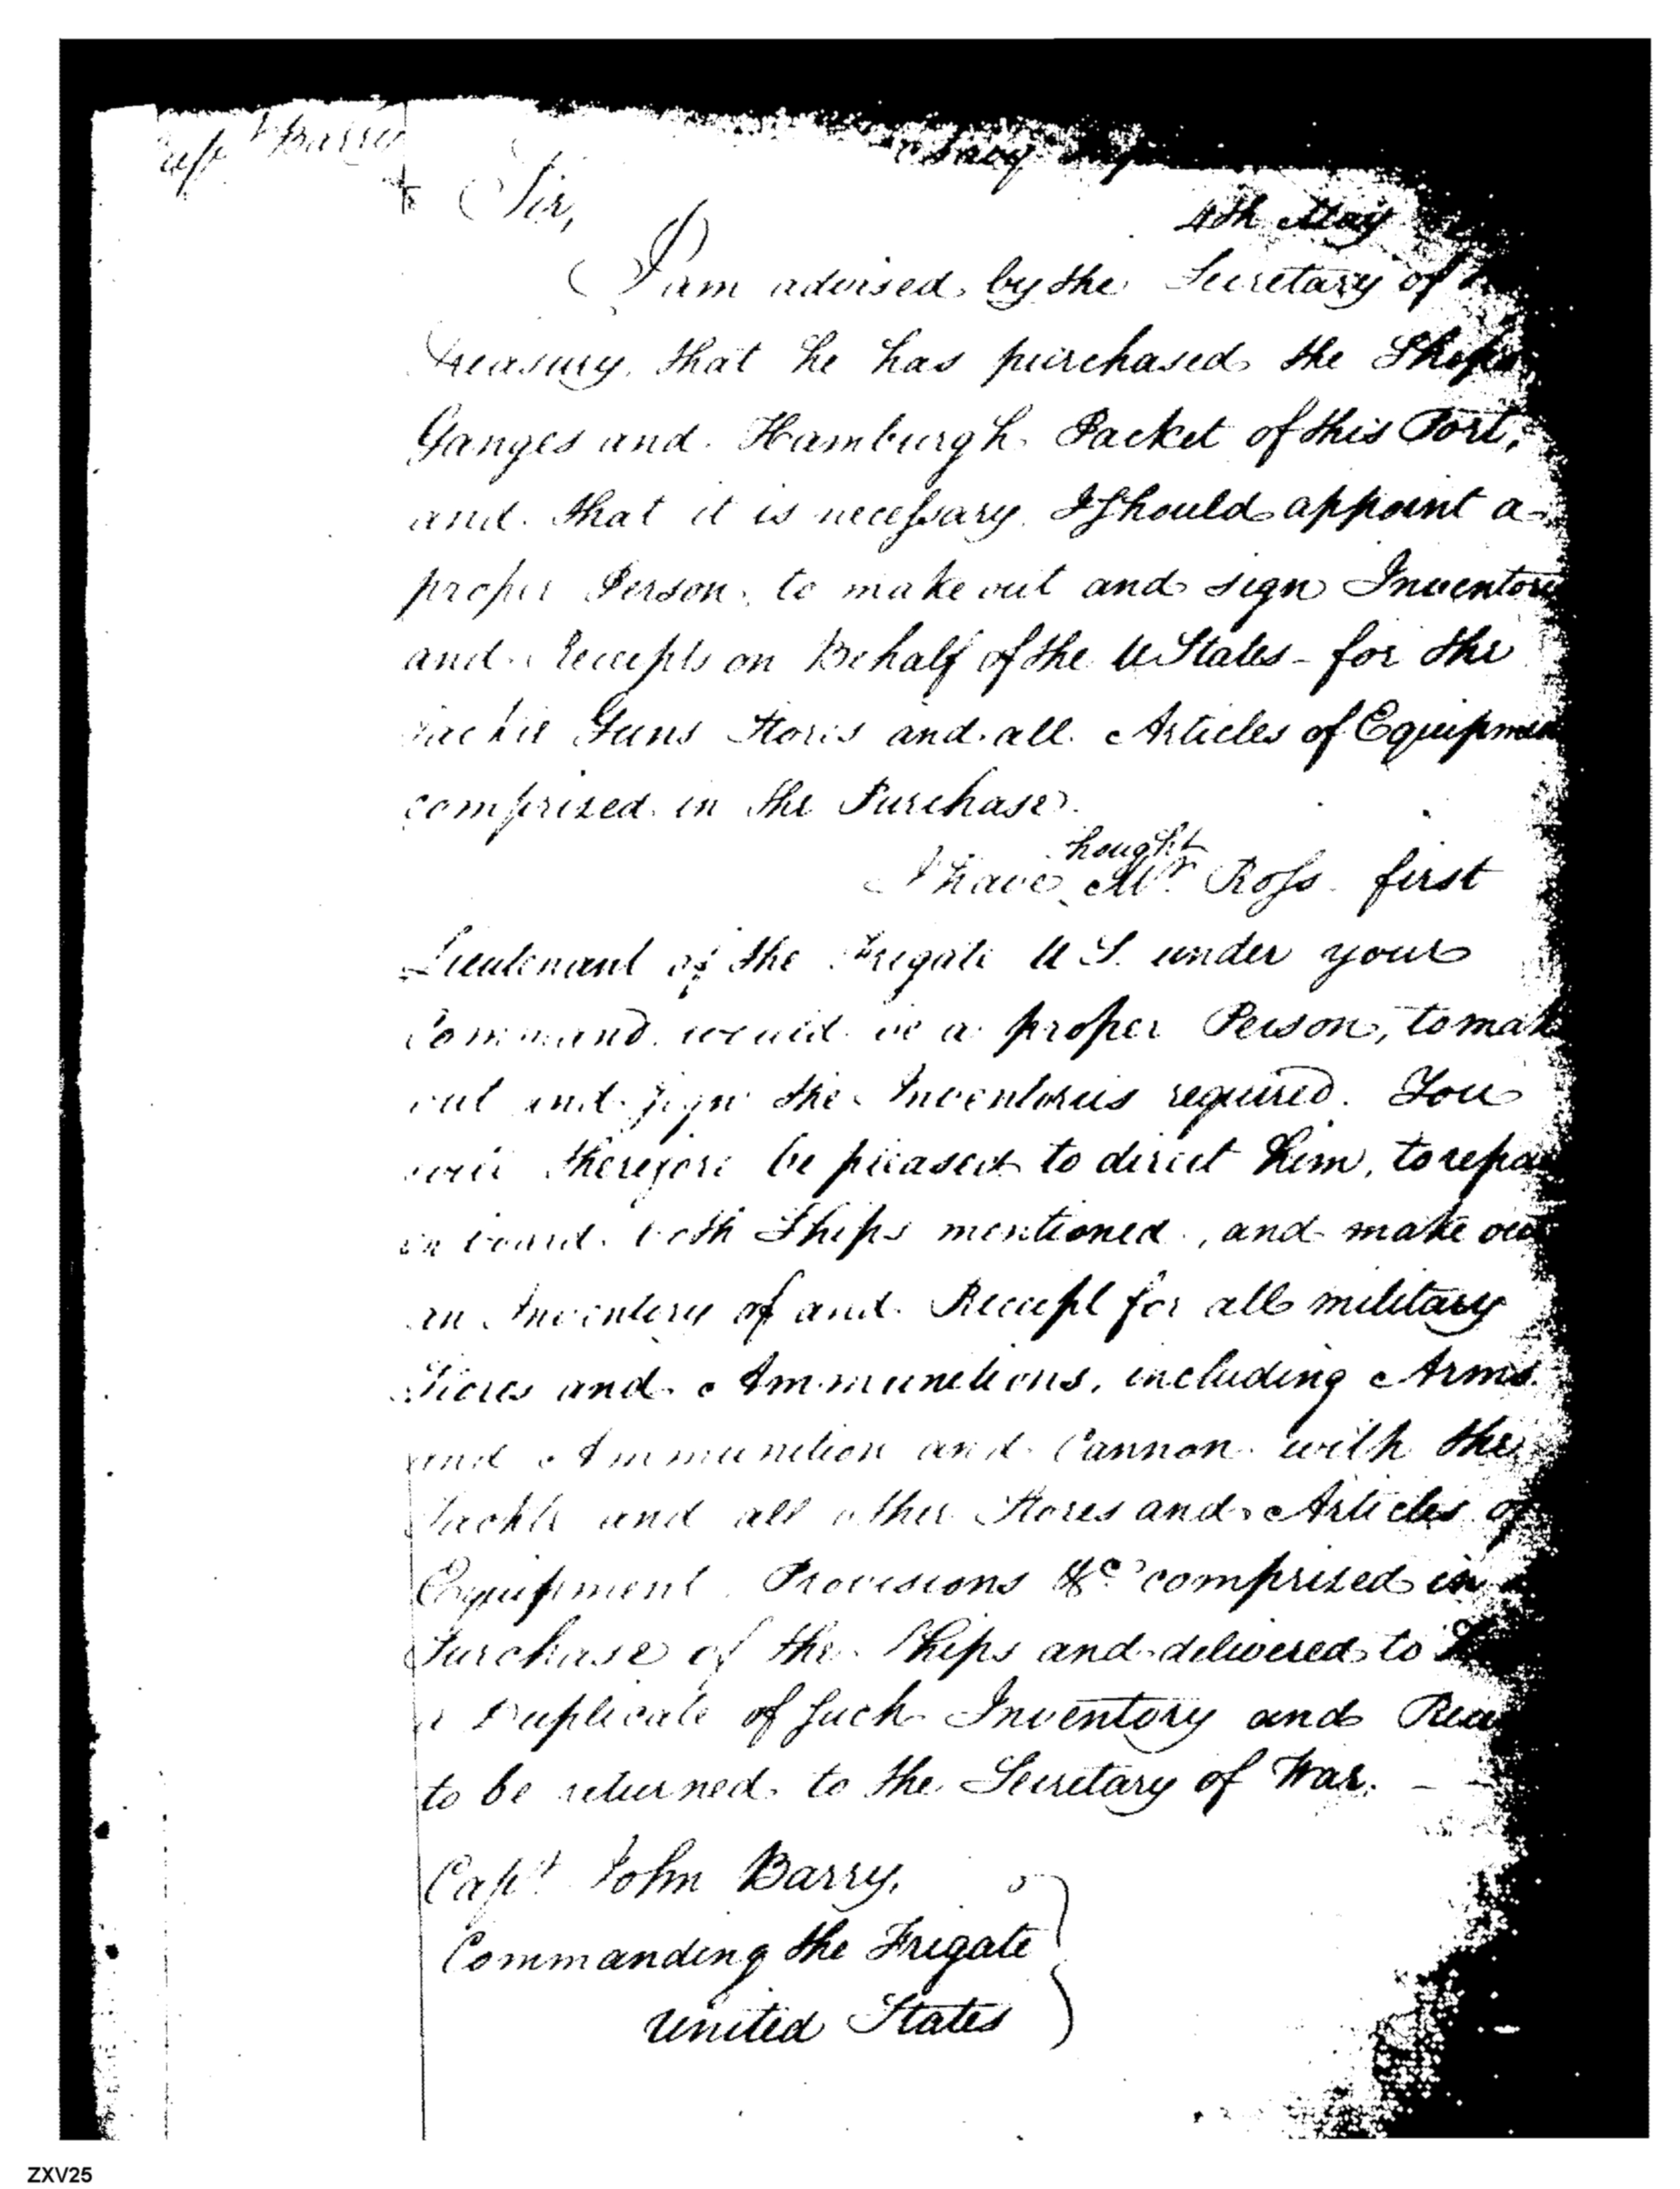 Capt Barry
Sir,
4th May
I am advised by the Secretary of
Treasury that he has purchased the Ships
Ganges and Hamburgh Packet of this Port,
and that it is necessary I should appoint a
proper Person, to make out and sign Inventorie
and Receipts on Behalf of the U States - for the
Tackle Guns Stores and all Articles of Equipmen
comprized in the Purchase.
thought
I have Mr. Ross first
Lieutenant of the Frigate U S. under your
Command would be a proper Person, to mak
out and sign the Inventories required. You
will therefore be pleased to direct him, to repai
on board both Ships mentioned, and make out
an Inventory of and Receipt for all military
Stores and Ammunitions, including Arms
and Ammunition and Cannon with the
Tackle and all other Stores and Articles of
Equipment Provisions &c. comprized in
Purchase of the Ships and delivered to
a Duplicate of such Inventory and Rece
to be returned to the Secretary of War. -
Capt. John Barry,
Commanding the Frigate
United States
ZXV25